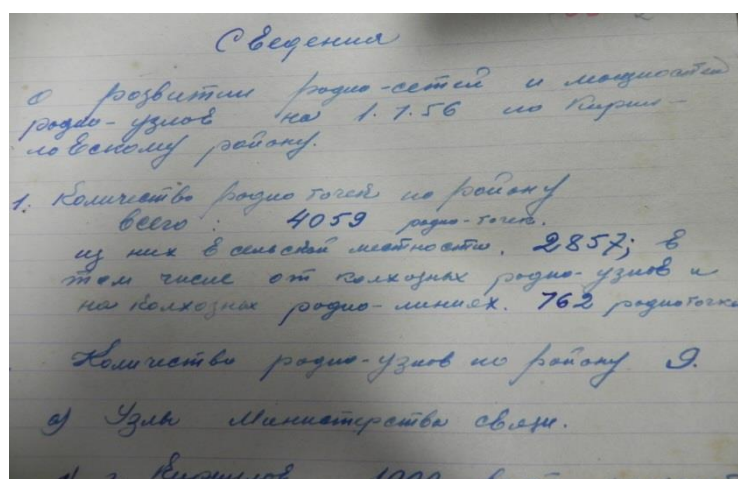 Сведения
о розвитии родио-сетей и мощностей
родио-узлов на 1.1.56 по Кирил-
ловскому району.
1. Количество родио точек по району
всего: 4059 родио-точек.
из них в сельской местности. 2857; в
том числе от колхозных родио-узлов и
на колхозных родио-линиях. 762 родиоточки
Количество родио-узлов по району 9.
а) Узлы Министерства связи.
г. Кириллов